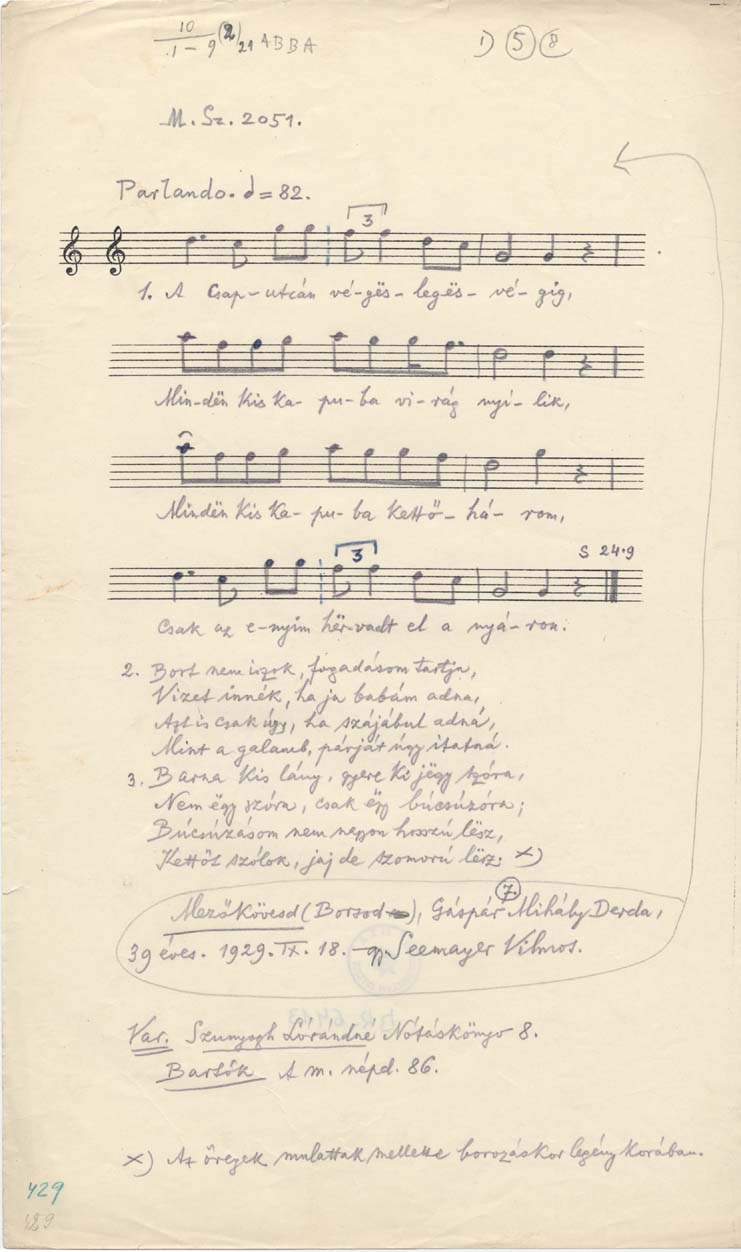 10
1 – 9 (2) 21 A B B A
1) 5 8
M. Sz. 2051.
Parlando. = 82.
3
1. A Csap-utcán vé-gës-legës-vé-gig,
Min-dën kis ka-pu-ba vi-rág nyí-lik,
Mindën kis ka-pu-ba kettő-há-rom,
S 24.9
3
Csak az e-nyim hër-vadt el a nyá-ron.
2. Bort nem iszok, fogadásom tartja,
Vizet innék, ha ja babám adna,
Azt is csak úgy, ha szájábul adná,
Mint a galamb, párját úgy itatná.
3. Barna kis lány, gyere ki jëgy szóra,
Nem ëgy szóra, csak ëgy búcsúzóra;
Búcsúzásom nem nagyon hosszú lësz,
Kettőt szólok, jaj de szomorú lësz. x)
7
Mezőkövesd (Borsod), Gáspár Mihály Derda,
39 éves. 1929. IX. 18. Seemayer Vilmos.
Var. Szunyogh Lórándné Nótáskönyv 8.
Bartók A m. népd. 86.
x) Az öregek mulattak mellette borozáskor legény korában.
429